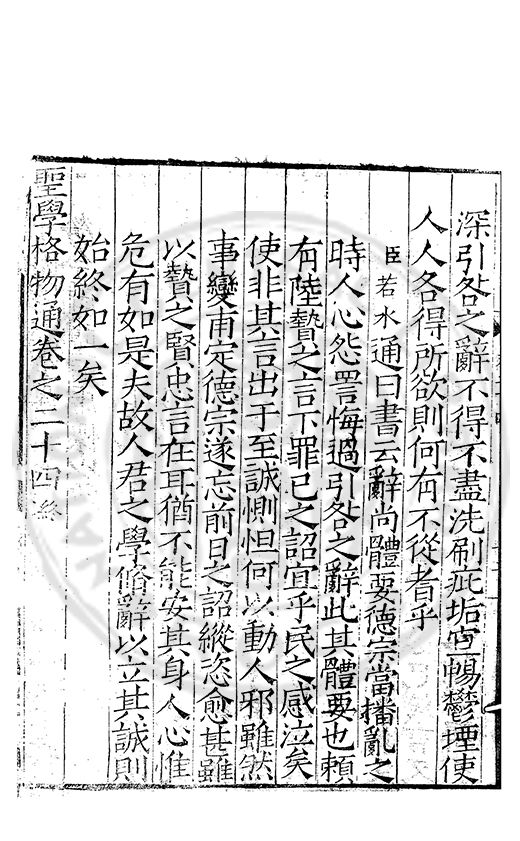 深引咎之辭不得不盡洗刷疵垢宣暢鬱堙使
人人各得所欲則何有不從者乎
臣若水通曰書云辭尚體要德宗當播亂之
時人心怨詈悔過引咎之辭此其體要也賴
有陸贄之言下罪已之詔宜乎民之感泣矣
使非其言出于至誠惻怛何以動人邪雖然
事變甫定德宗遂忘前日之詔縱恣愈甚雖
以贄之賢忠言在耳猶不能安其身人心惟
危有如是夫故人君之學脩辭以立其誠則
始終如一矣
聖學格物通卷之二十四終